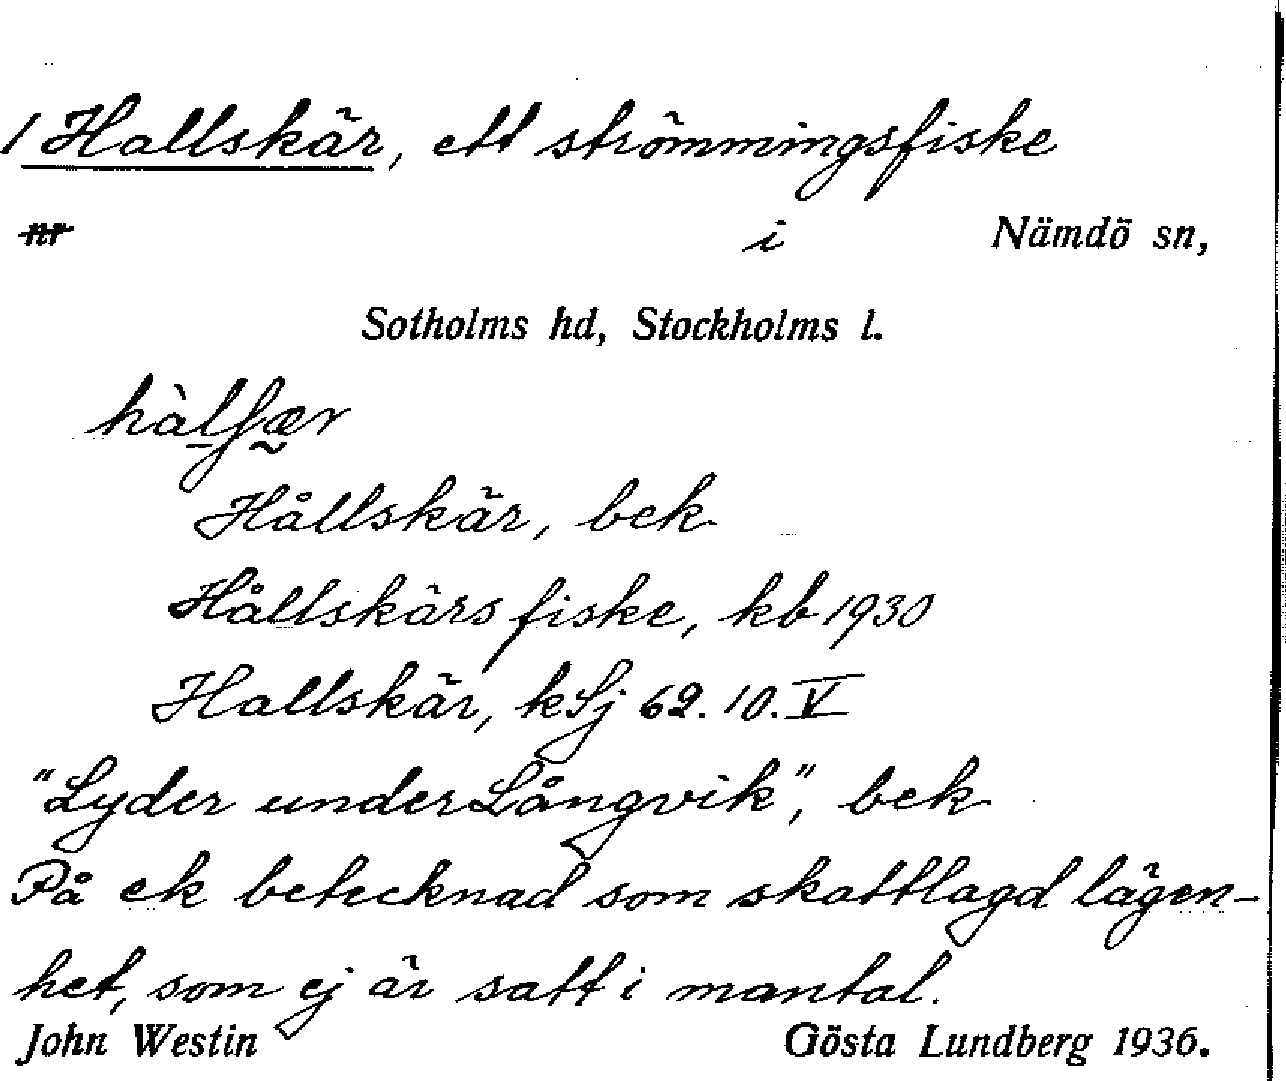 1 Hallskär, ett strömmingsfiske
nr i Nämdö sn,
Sotholms hd, Stockholms l.
hàlʃær
Hållskär, bek
Hållskärs fiske, kb 1930
Hallskär, kSj 62. 10. V
"Lyder under Långvik", bek
På ek betecknad som skattlagd lägen-
het, som ej är satt i mantal.
John Westin Gösta Lundberg 1936.